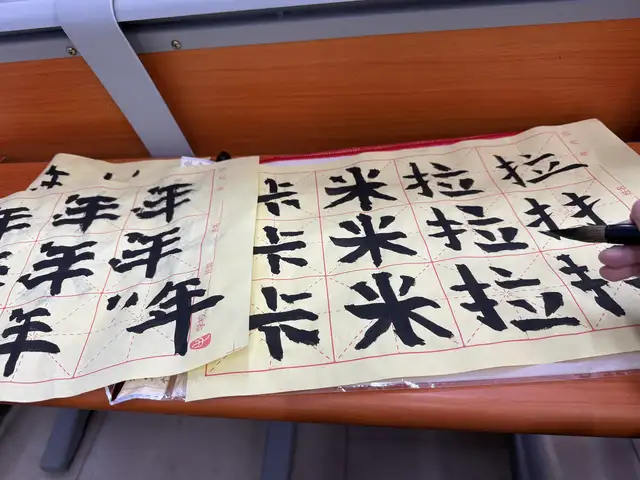 年 年 年
年 年
年 年
卡 米 拉 拉
卡 米 拉 扌
卡 米 拉 扌